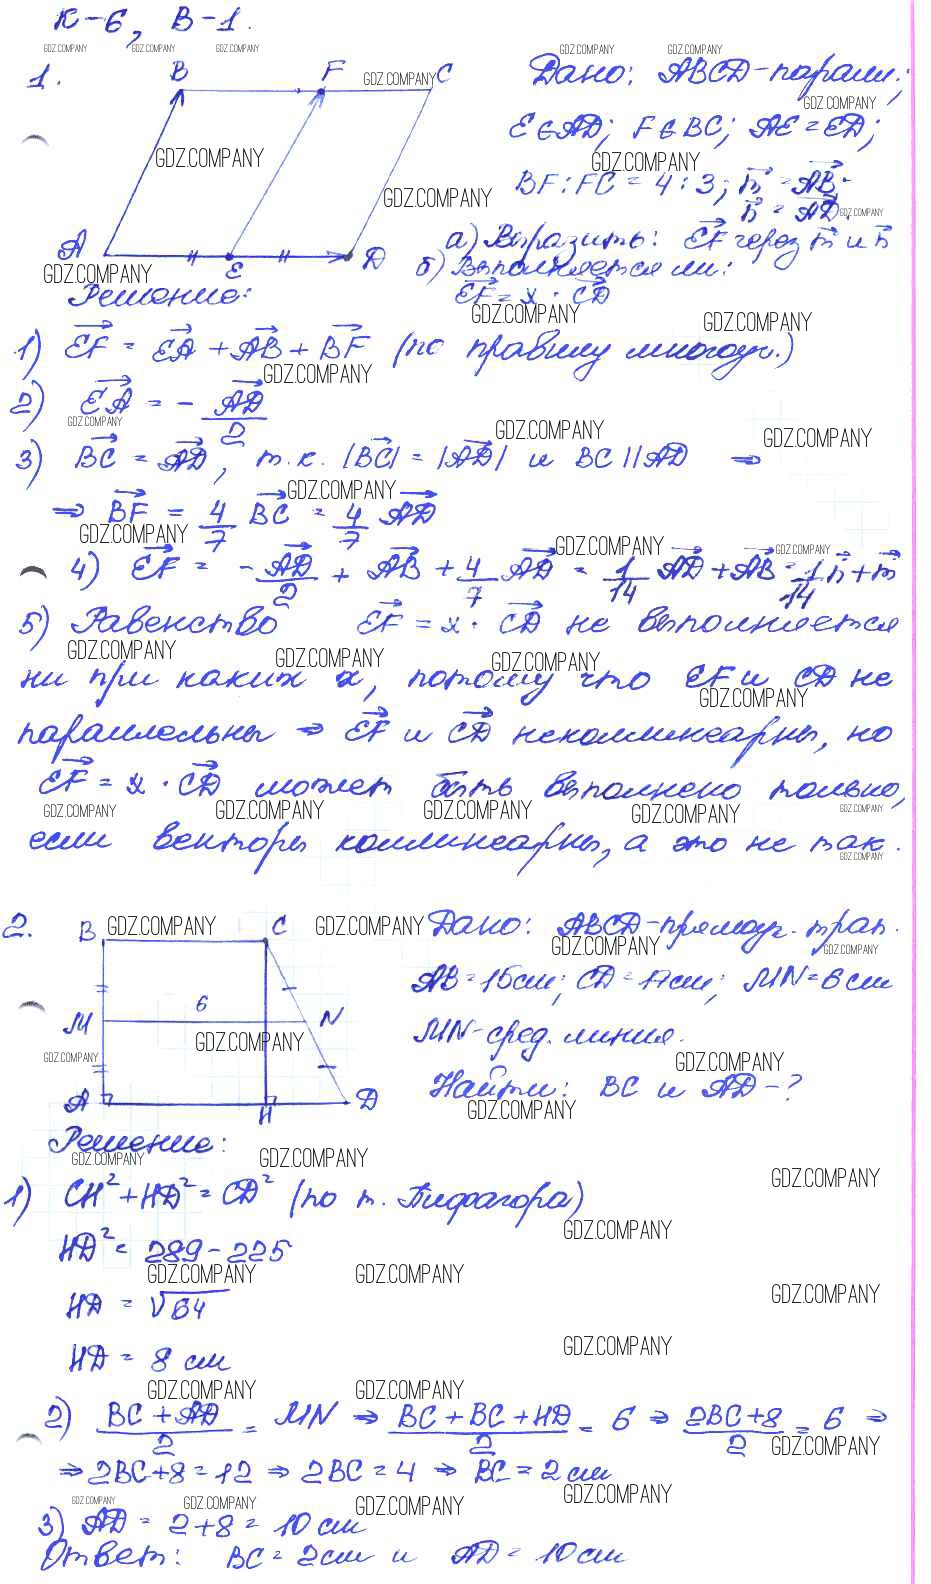 К-6, В-1.
1. B F C Дано: ABCD-паралл.;
E∈AD; F∈BC; AE=ED;
BF:FC=4:3; m⃗=AB⃗;
n⃗=AD⃗.
A E D а) Выразить: EF⃗ через m⃗ и n⃗
б) Выполняется ли:
EF⃗=x·CD⃗
Решение:
1) EF⃗ = EA⃗ + AB⃗ + BF⃗ (по правилу многоуг.)
2) EA⃗ = -AD⃗/2
3) BC⃗ = AD⃗, т.к. |BC⃗| = |AD⃗| и BC || AD ⇒
⇒ BF⃗ = 4/7 BC⃗ = 4/7 AD⃗
4) EF⃗ = -AD⃗/2 + AB⃗ + 4/7 AD⃗ = 1/14 AD⃗ + AB⃗ = 1/14 n⃗ + m⃗
5) Равенство EF⃗ = x·CD⃗ не выполняется
ни при каких x, потому что EF и CD не
параллельны ⇒ EF⃗ и CD⃗ неколлинеарны, но
EF⃗ = x·CD⃗ может быть выполнено только,
если векторы коллинеарны, а это не так.
2. B C Дано: ABCD-прямоуг. трап.
AB=15см; CD=17см; MN=6см
M 6 N MN-сред. линия.
A H D Найти: BC и AD-?
Решение:
1) CH²+HD²=CD² (по т. Пифагора)
HD²=289-225
HD=√64
HD=8 см
2) (BC+AD)/2 = MN ⇒ (BC+BC+HD)/2 = 6 ⇒ (2BC+8)/2 = 6 ⇒
⇒ 2BC+8=12 ⇒ 2BC=4 ⇒ BC=2см
3) AD=2+8=10см
Ответ: BC=2см и AD=10см
GDZ.COMPANY